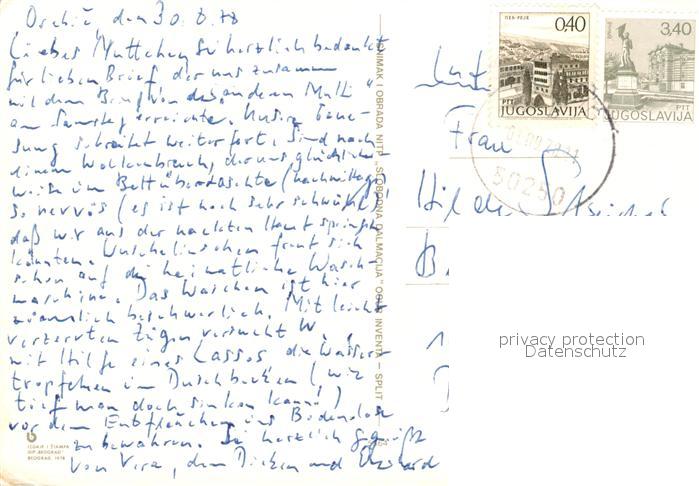 Orebić, den 30.8.78
Liebes Muttchen, sei herzlich bedankt
für lieben Brief, der uns zusammen
mit dem Brief von des anderen Mutti
am Samstag erreichte. Unsere Gene-
sung schreitet weiter fort, sind nach
einem Wolkenbruch, der uns glücklicher-
weise im Bett überraschte (nachmittags)
so nervös (es ist noch sehr schwül)
daß wir aus der nackten Haut springen
könnten. Wuschelinschen freut sich
schon auf die heimatliche Wasch-
maschine. Das Waschen ist hier
ziemlich beschwerlich. Mit leicht
verzerrten Zügen versucht W.
mit Hilfe eines Lassos die Wasser-
tropfen im Duschbecken (wie
tief man doch sinken kann!)
vor dem Entfleuchen ins Bodenlose
zu bewahren. Sei herzlich gegrüßt
von Vera, dem Dicken und Ekehard
SNIMAK I OBRADA NITP "SLOBODNA DALMACIJA" OOUR INVENTA — SPLIT
IZDAJE I ŠTAMPA
GIP „BEOGRAD"
BEOGRAD, 1978
ПЕЋ-PEJË
0,40
PTT
JUGOSLAVIJA
3,40
PTT
JUGOSLAVIJA
50250
Frau
Hilde
B.
privacy protection
Datenschutz